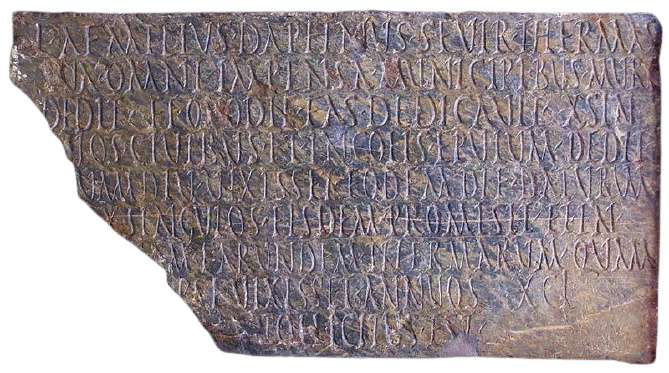 L·AEMILIVS·DAPHNVS·SEVIR THERMAS
SVA·OMNI IMPENSA·MVNICIPIBVS·MVRG
DEDIT·ET QVO DIE EAS DEDICAVIT·X SIN
LOS CIVIBVS ET INCOLIS EPVLVM·DEDIT
AM DIV VIXISSET EODEM DIE DATVRVM
X SINGVLOS EISDEM PROMISIT·ET IN
M EARVNDEM THERMARVM QVAM
VIXISSET·ANNVOS X CL
LICITVS·EST